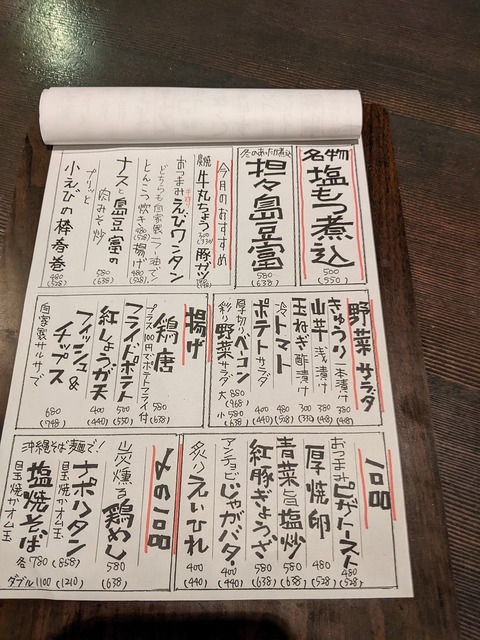 名物
塩もつ煮込
500
(550)
冬のあったか煮込
担々島豆富
580
(638)
今月のおすすめ
牛丸ちょう
300
(330)
豚ガツ
おつまみえびワンタン
どちらも自家製ラー油で!
とんこつ炊き
480
(528)
揚げ
480
(528)
ナスと島豆富の
肉みそ炒
580
(638)
プリッと
小えびの棒春巻
480
(528)
野菜 サラダ
きゅうり一本漬け
380
(418)
山芋 浅漬け
380
(418)
玉ねぎ酢漬け
300
(330)
冷トマト
480
(528)
ポテトサラダ
400
(440)
厚切りベーコン
彩り野菜サラダ
大 880
(968)
小 580
(638)
揚げ
鶏唐
580
(638)
プラス100円でポテトフライ付
フライドポテト
500
(550)
紅しょうが天
400
(440)
フィッシュ&
チップス
680
(748)
自家製サルサで
一品
おつまみピザトースト
480
(528)
厚焼卵
480
(528)
青菜旨塩炒
580
(638)
紅豚ぎょうざ
580
(638)
アンチョビじゃがバター
400
(440)
炙りえいひれ
400
(440)
〆の一品
炭燻る鶏めし
580
(638)
沖縄そば麺で!
ナポリタン
目玉焼かオム玉
塩焼そば
目玉焼かオム玉
各780 (858)
ダブル1100 (1210)